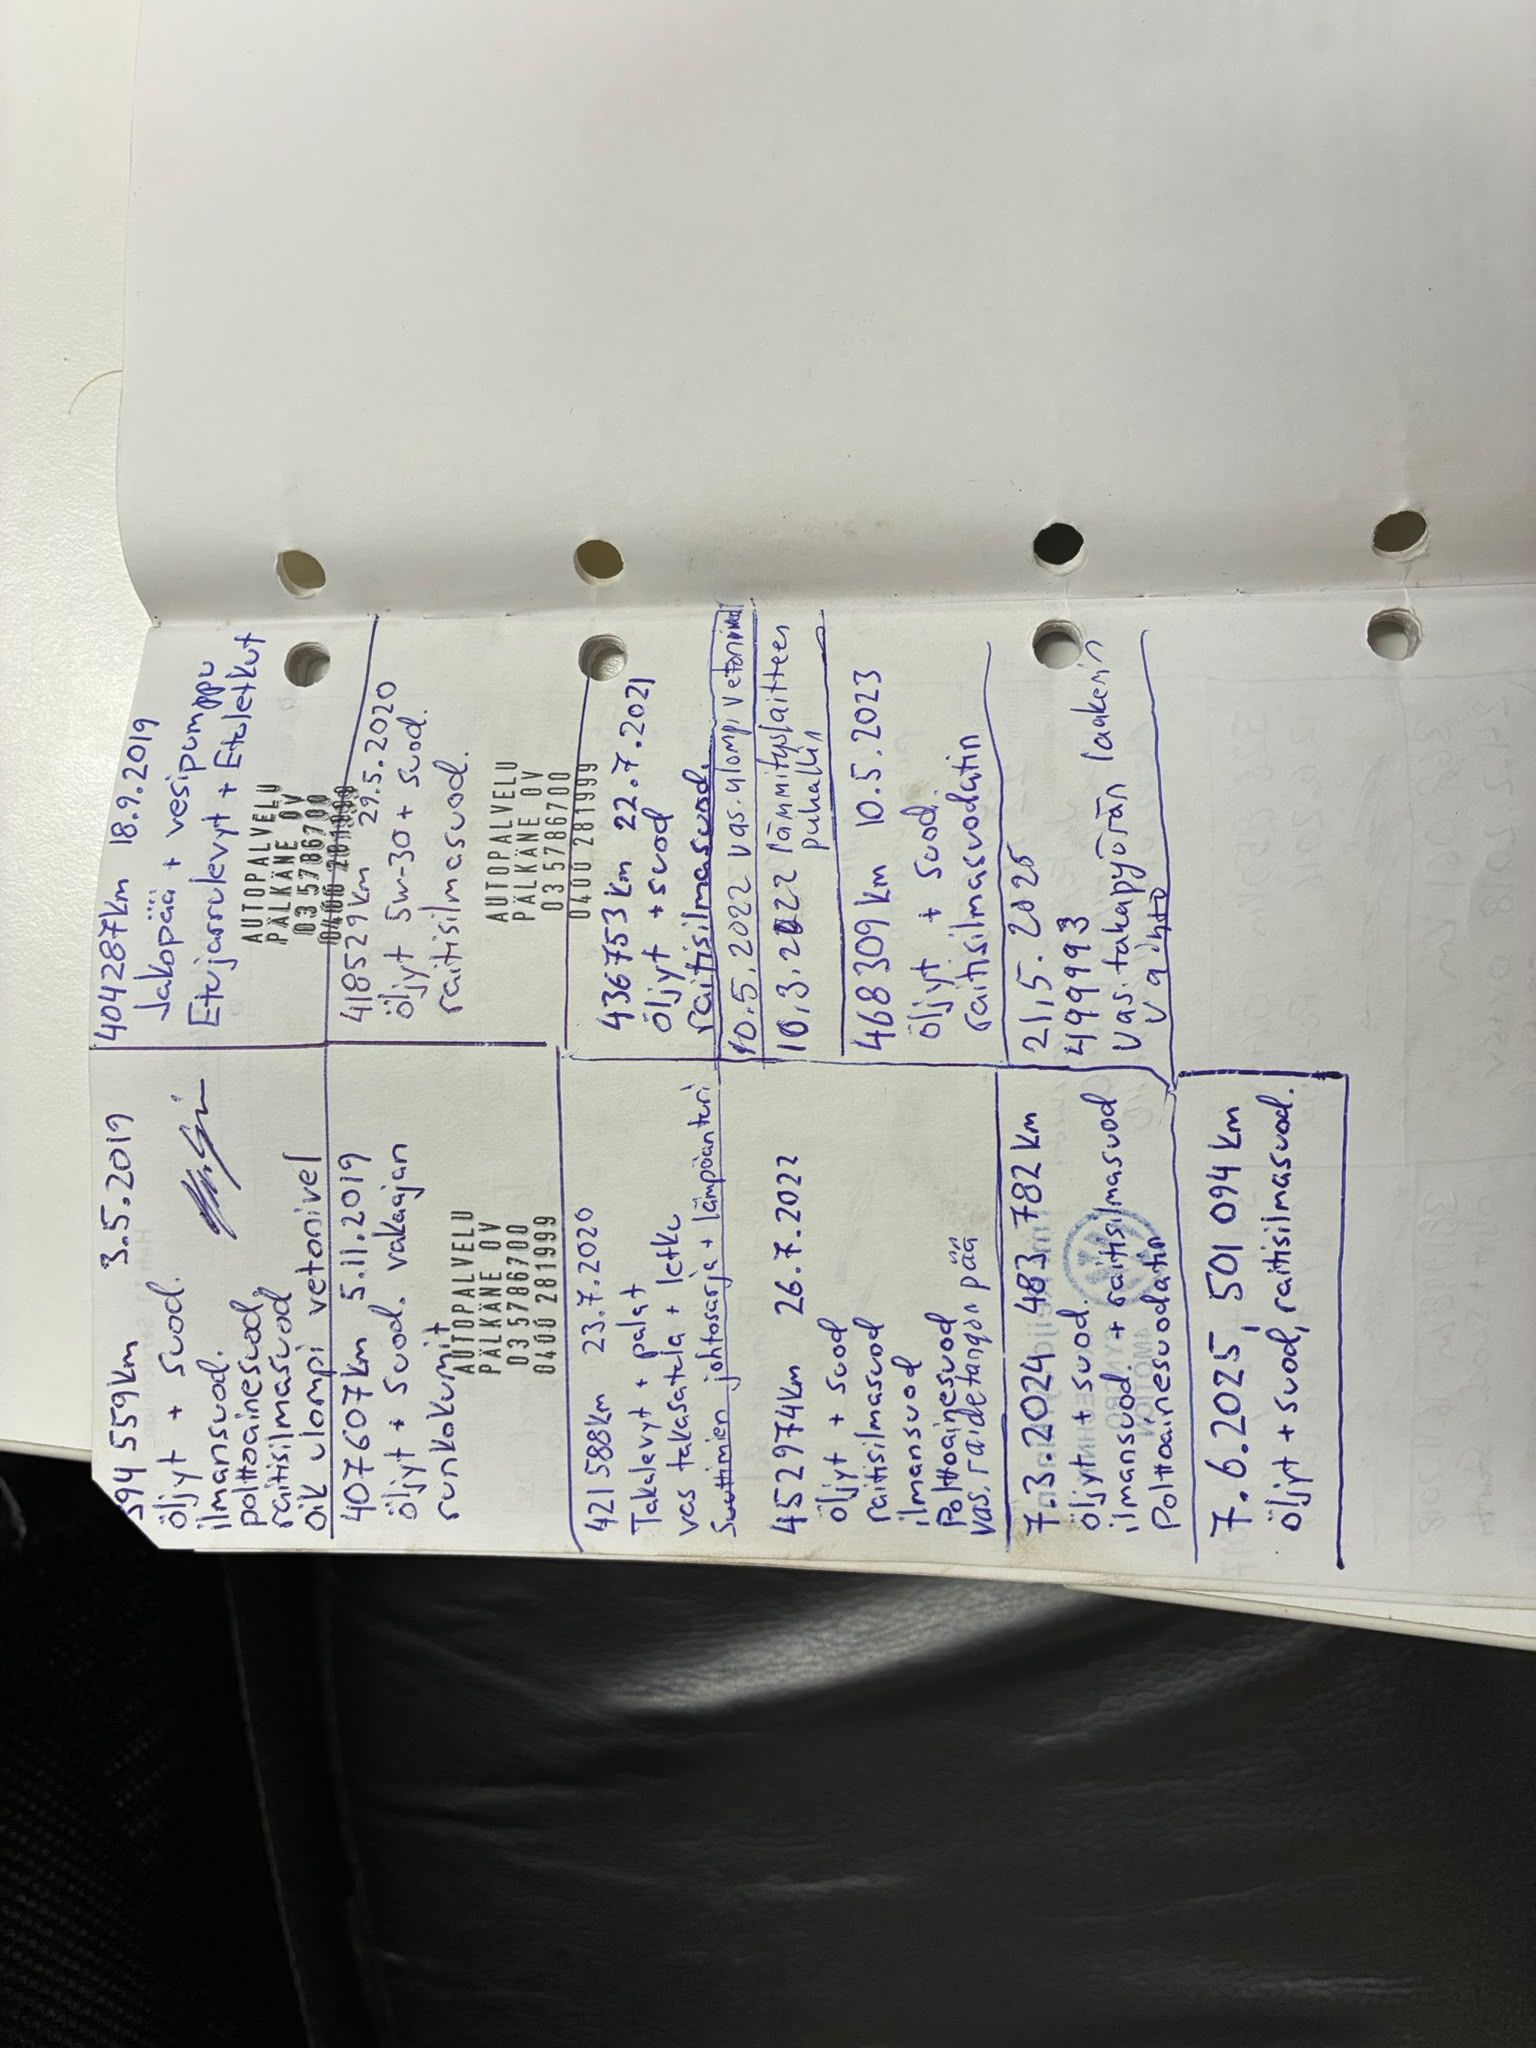 394 559km 3.5.2019
öljyt + suod.
ilmansuod.
polttoainesuod,
raitisilmasuod
Oik ulompi vetonivel
404287km 18.9.2019
Jakopää + vesipumppu
Etujarrulevyt + Etuletkut
AUTOPALVELU
PÄLKÄNE OY
03 5786700
0400 281999
407607km 5.11.2019
öljyt + suod. vakaajan
runkokumit
AUTOPALVELU
PÄLKÄNE OY
03 5786700
0400 281999
418529km 29.5.2020
öljyt 5w-30 + suod.
raitisilmasuod.
AUTOPALVELU
PÄLKÄNE OY
03 5786700
0400 281999
421588km 23.7.2020
Takalevyt + palat
vas takasatula + letku
Suuttimien johtosarja + lämpöanturi
436753km 22.7.2021
öljyt + suod
raitisilmasuod.
10.5.2022 vas. ulompi vetonivel
10.3.2022 lämmityslaitteen
puhallin
452974km 26.7.2022
öljyt + suod
raitisilmasuod
ilmansuod
Polttoainesuod
vas. raidetangon pää
468309km 10.5.2023
öljyt + suod.
raitisilmasuodatin
7.3.2024 483782km
öljyt + suod.
ilmansuod. + raitisilmasuod
Polttoainesuodatin
21.5.2025
499993
Vas. takapyörän laakerin
vaihto
7.6.2025, 501094km
öljyt + suod, raitisilmasuod.